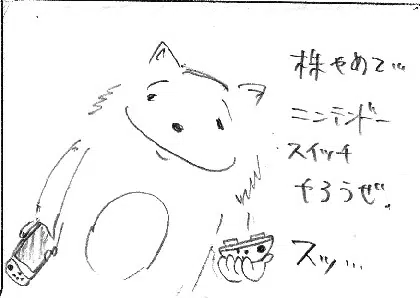 株やめて…
ニンテンドー
スイッチ
やろうぜ。
スッ…